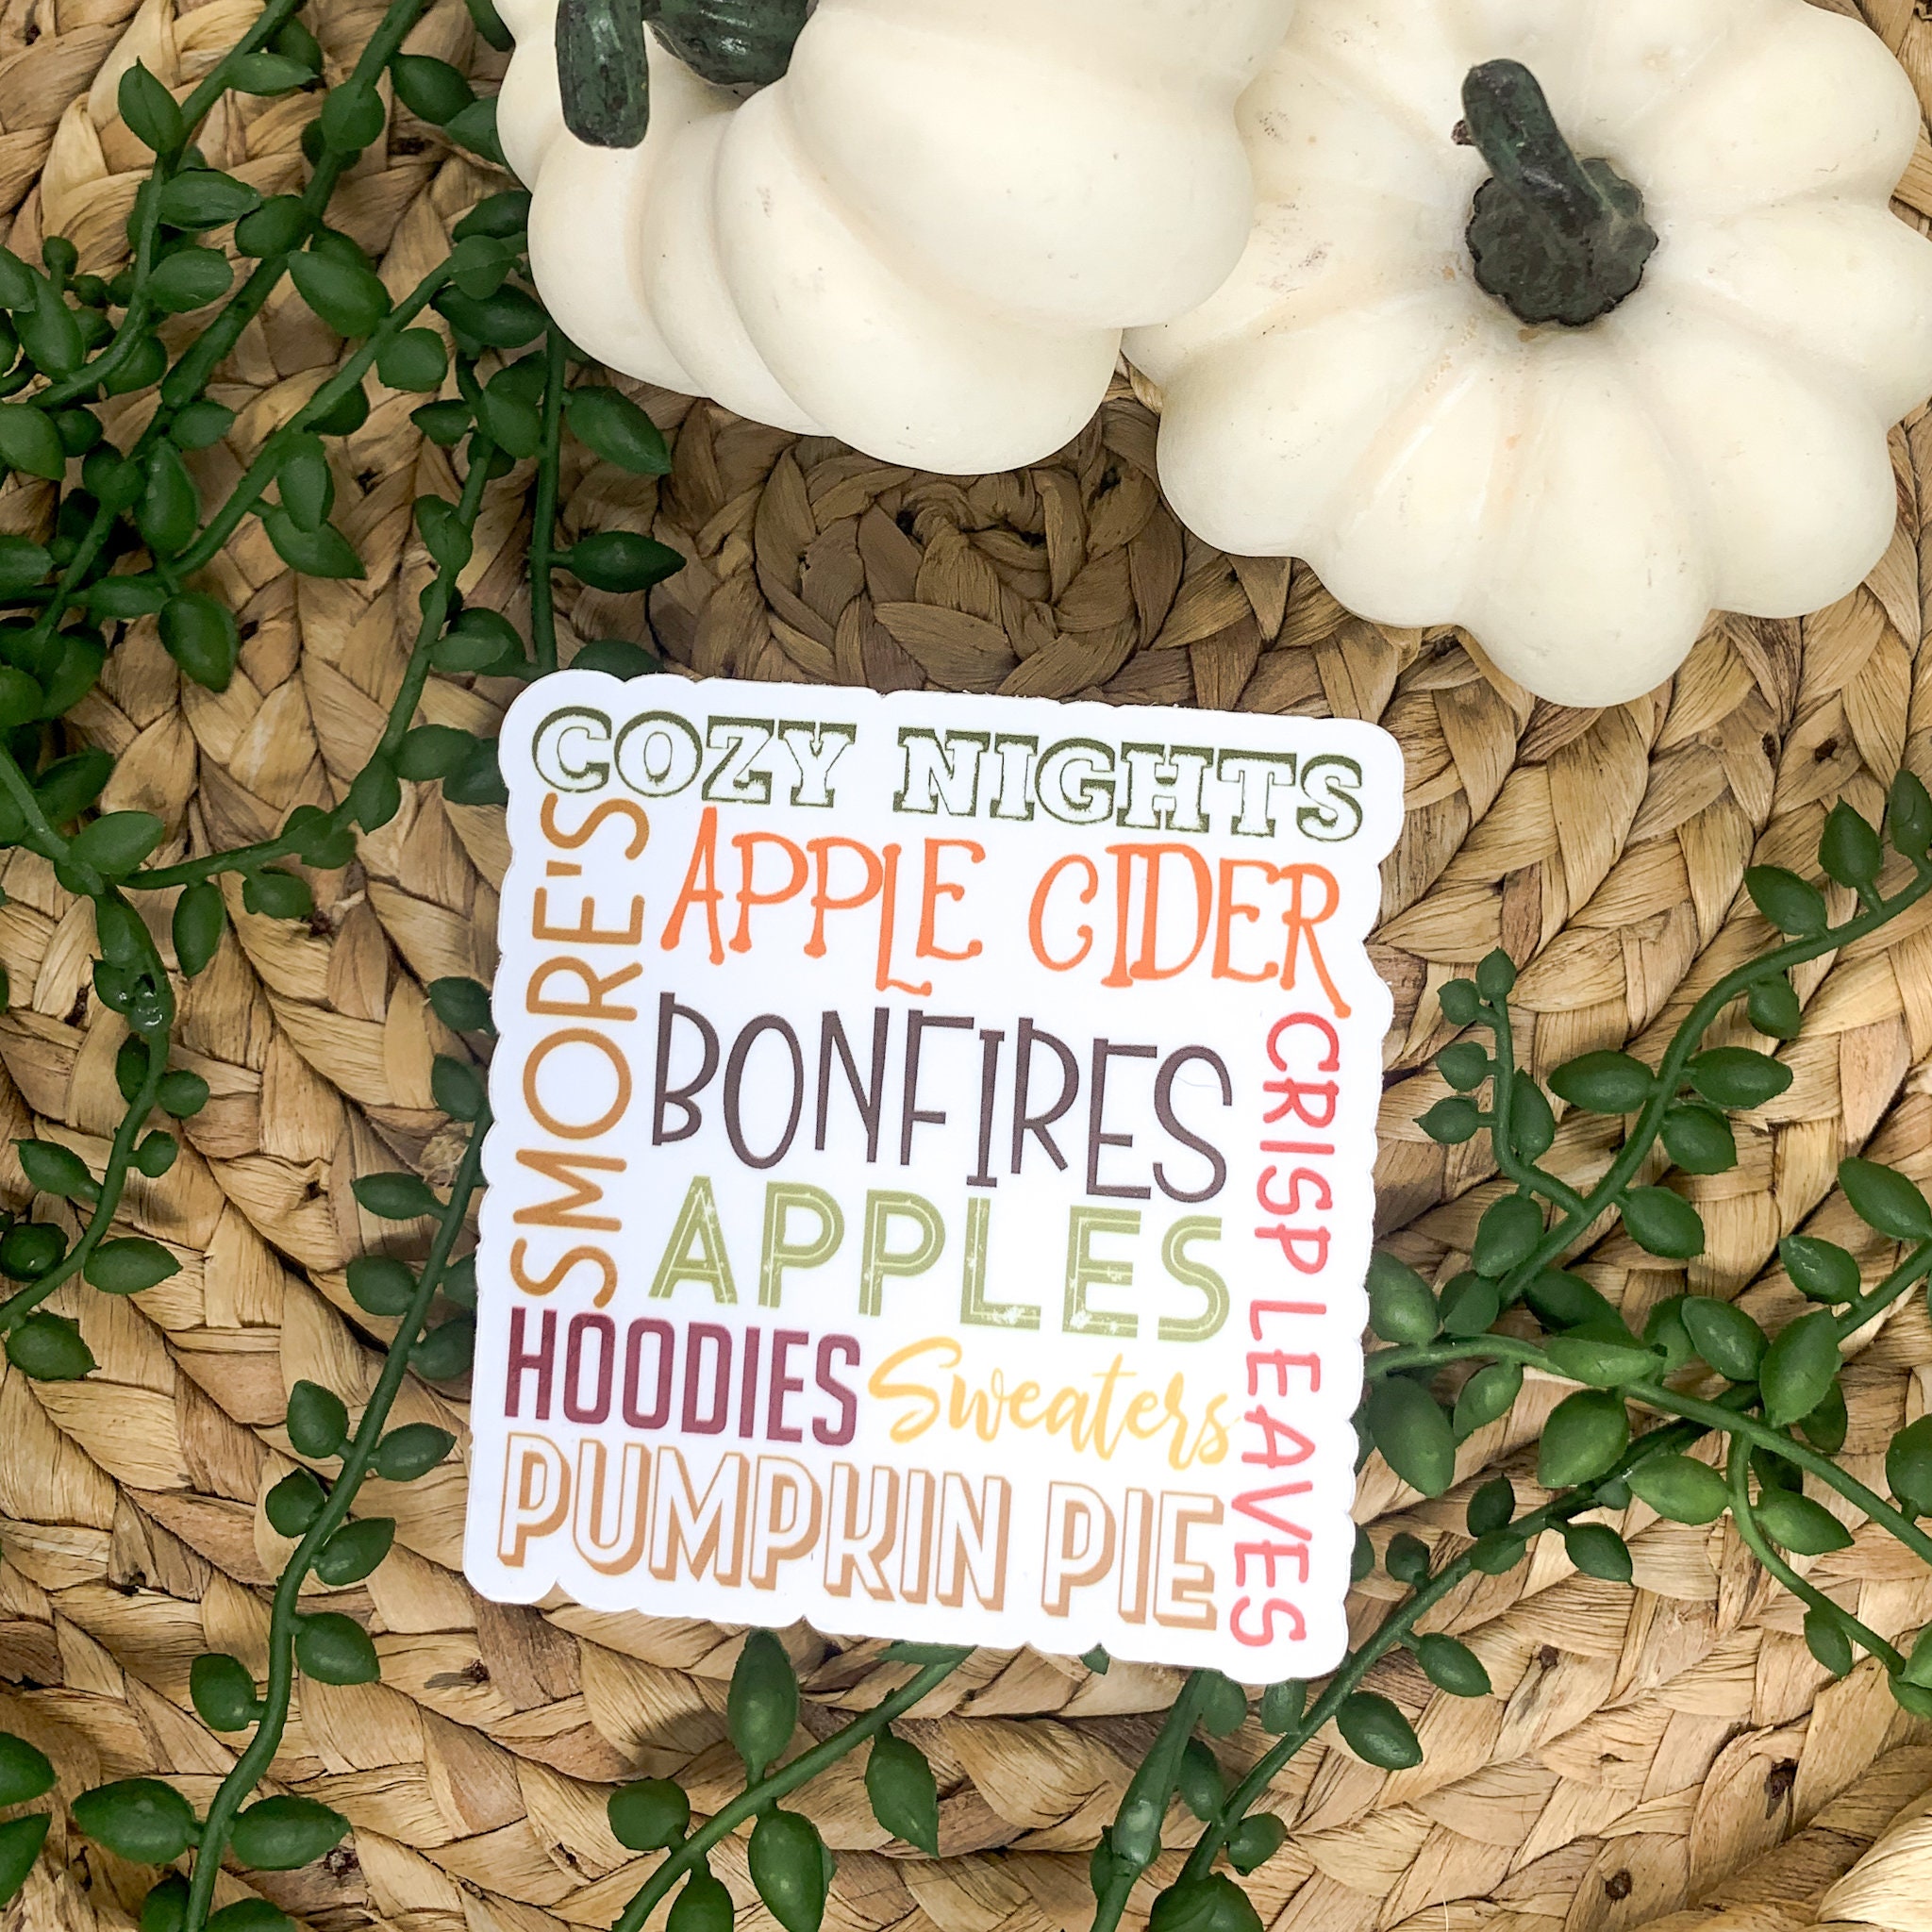 COZY NIGHTS
SMORE'S
APPLE CIDER
BONFIRES
APPLES
CRISP LEAVES
HOODIES Sweaters
PUMPKIN PIE